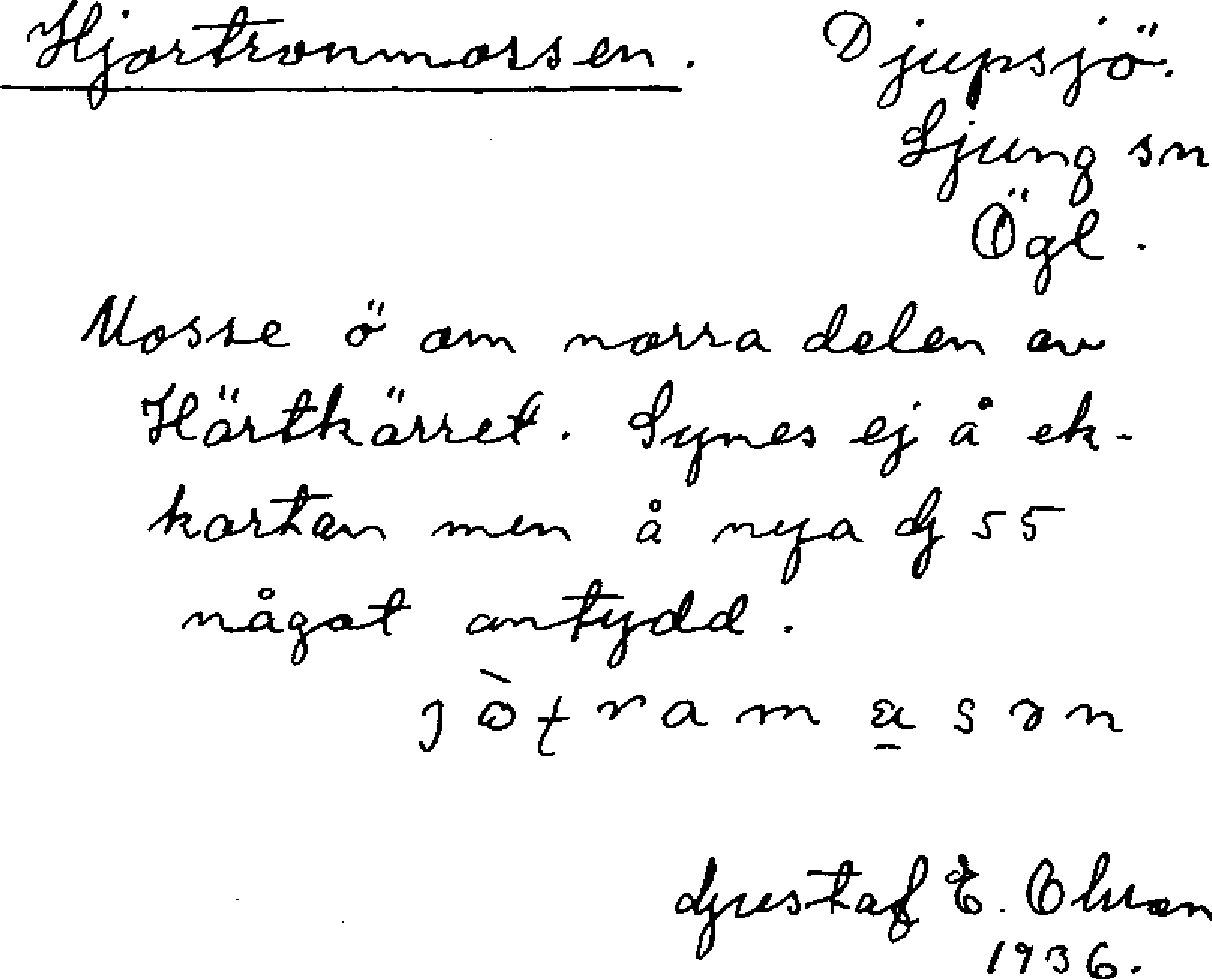 Hjortronmossen. Djupsjö.
Ljung sn
Ögl.
Mosse ö om norra delen av
Härtkärret. Synes ej å ek-
kartan men å nya
55
något antydd.
Gustaf E.
1936.